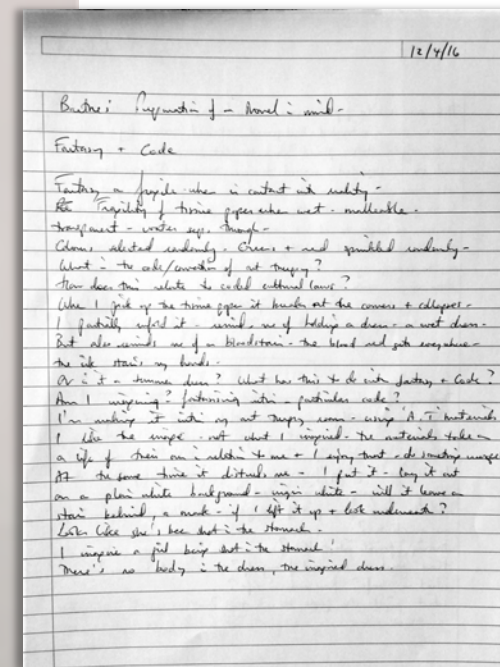 12/4/16
Barthes Preparation of a Novel in mind -
Fantasy + Code
Fantasy as fragile when in contact with reality -
Fragility of tissue paper when wet - malleable -
transparent - water seeps through -
Colours selected randomly - Green + red sprinkled randomly -
What is the code/convention of art therapy?
How does this relate to coded cultural laws?
When I pick up the tissue paper it breaks at the corners + collapses -
I partially unfold it - reminds me of holding a dress - a wet dress -
But also reminds me of a bloodstain - the blood red gets everywhere -
the ink stains my hands.
Or is it a summer dress? What has this to do with fantasy + Code?
Am I imagining? fantasising into a particular code?
I'm making it in my art therapy room - using A.T materials
I like the image - not what I imagined - the materials take on
a life of their own in relation to me + I enjoy that - do something unexpected
At the same time it disturbs me - I put it - lay it out
on a plain white background - virgin white - will it leave a
stain behind, a mark - if I left it up + look underneath?
Looks like she's been shot in the stomach.
I imagine a girl being shot in the stomach!
There's no body in the dress, the imagined dress.